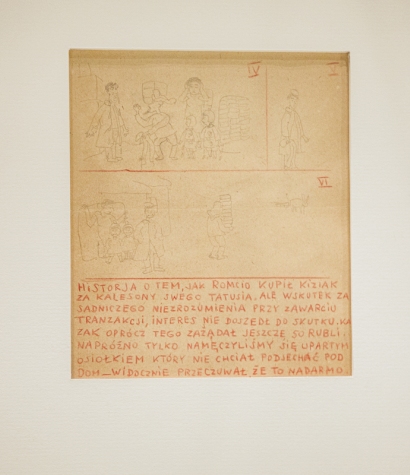 IV
V
VI
HISTORJA O TEM, JAK ROMCIO KUPIŁ KIZIAK
ZA KALESONY SWEGO TATUSIA, ALE WSKUTEK ZA
SADNICZEGO NIEZROZUMIENIA PRZY ZAWARCIU
TRANZAKCJI, INTERES NIE DOSZEDŁ DO SKUTKU. KA
ZAK OPRÓCZ TEGO ZAŻĄDAŁ JESZCZE 50 RUBLI.
NAPRÓŻNO TYLKO NAMĘCZYLIŚMY SIĘ UPARTYM
OSIOŁKIEM KTÓRY NIE CHCIAŁ PODJECHAĆ POD
DOM — WIDOCZNIE PRZECZUWAŁ ŻE TO NADARMO